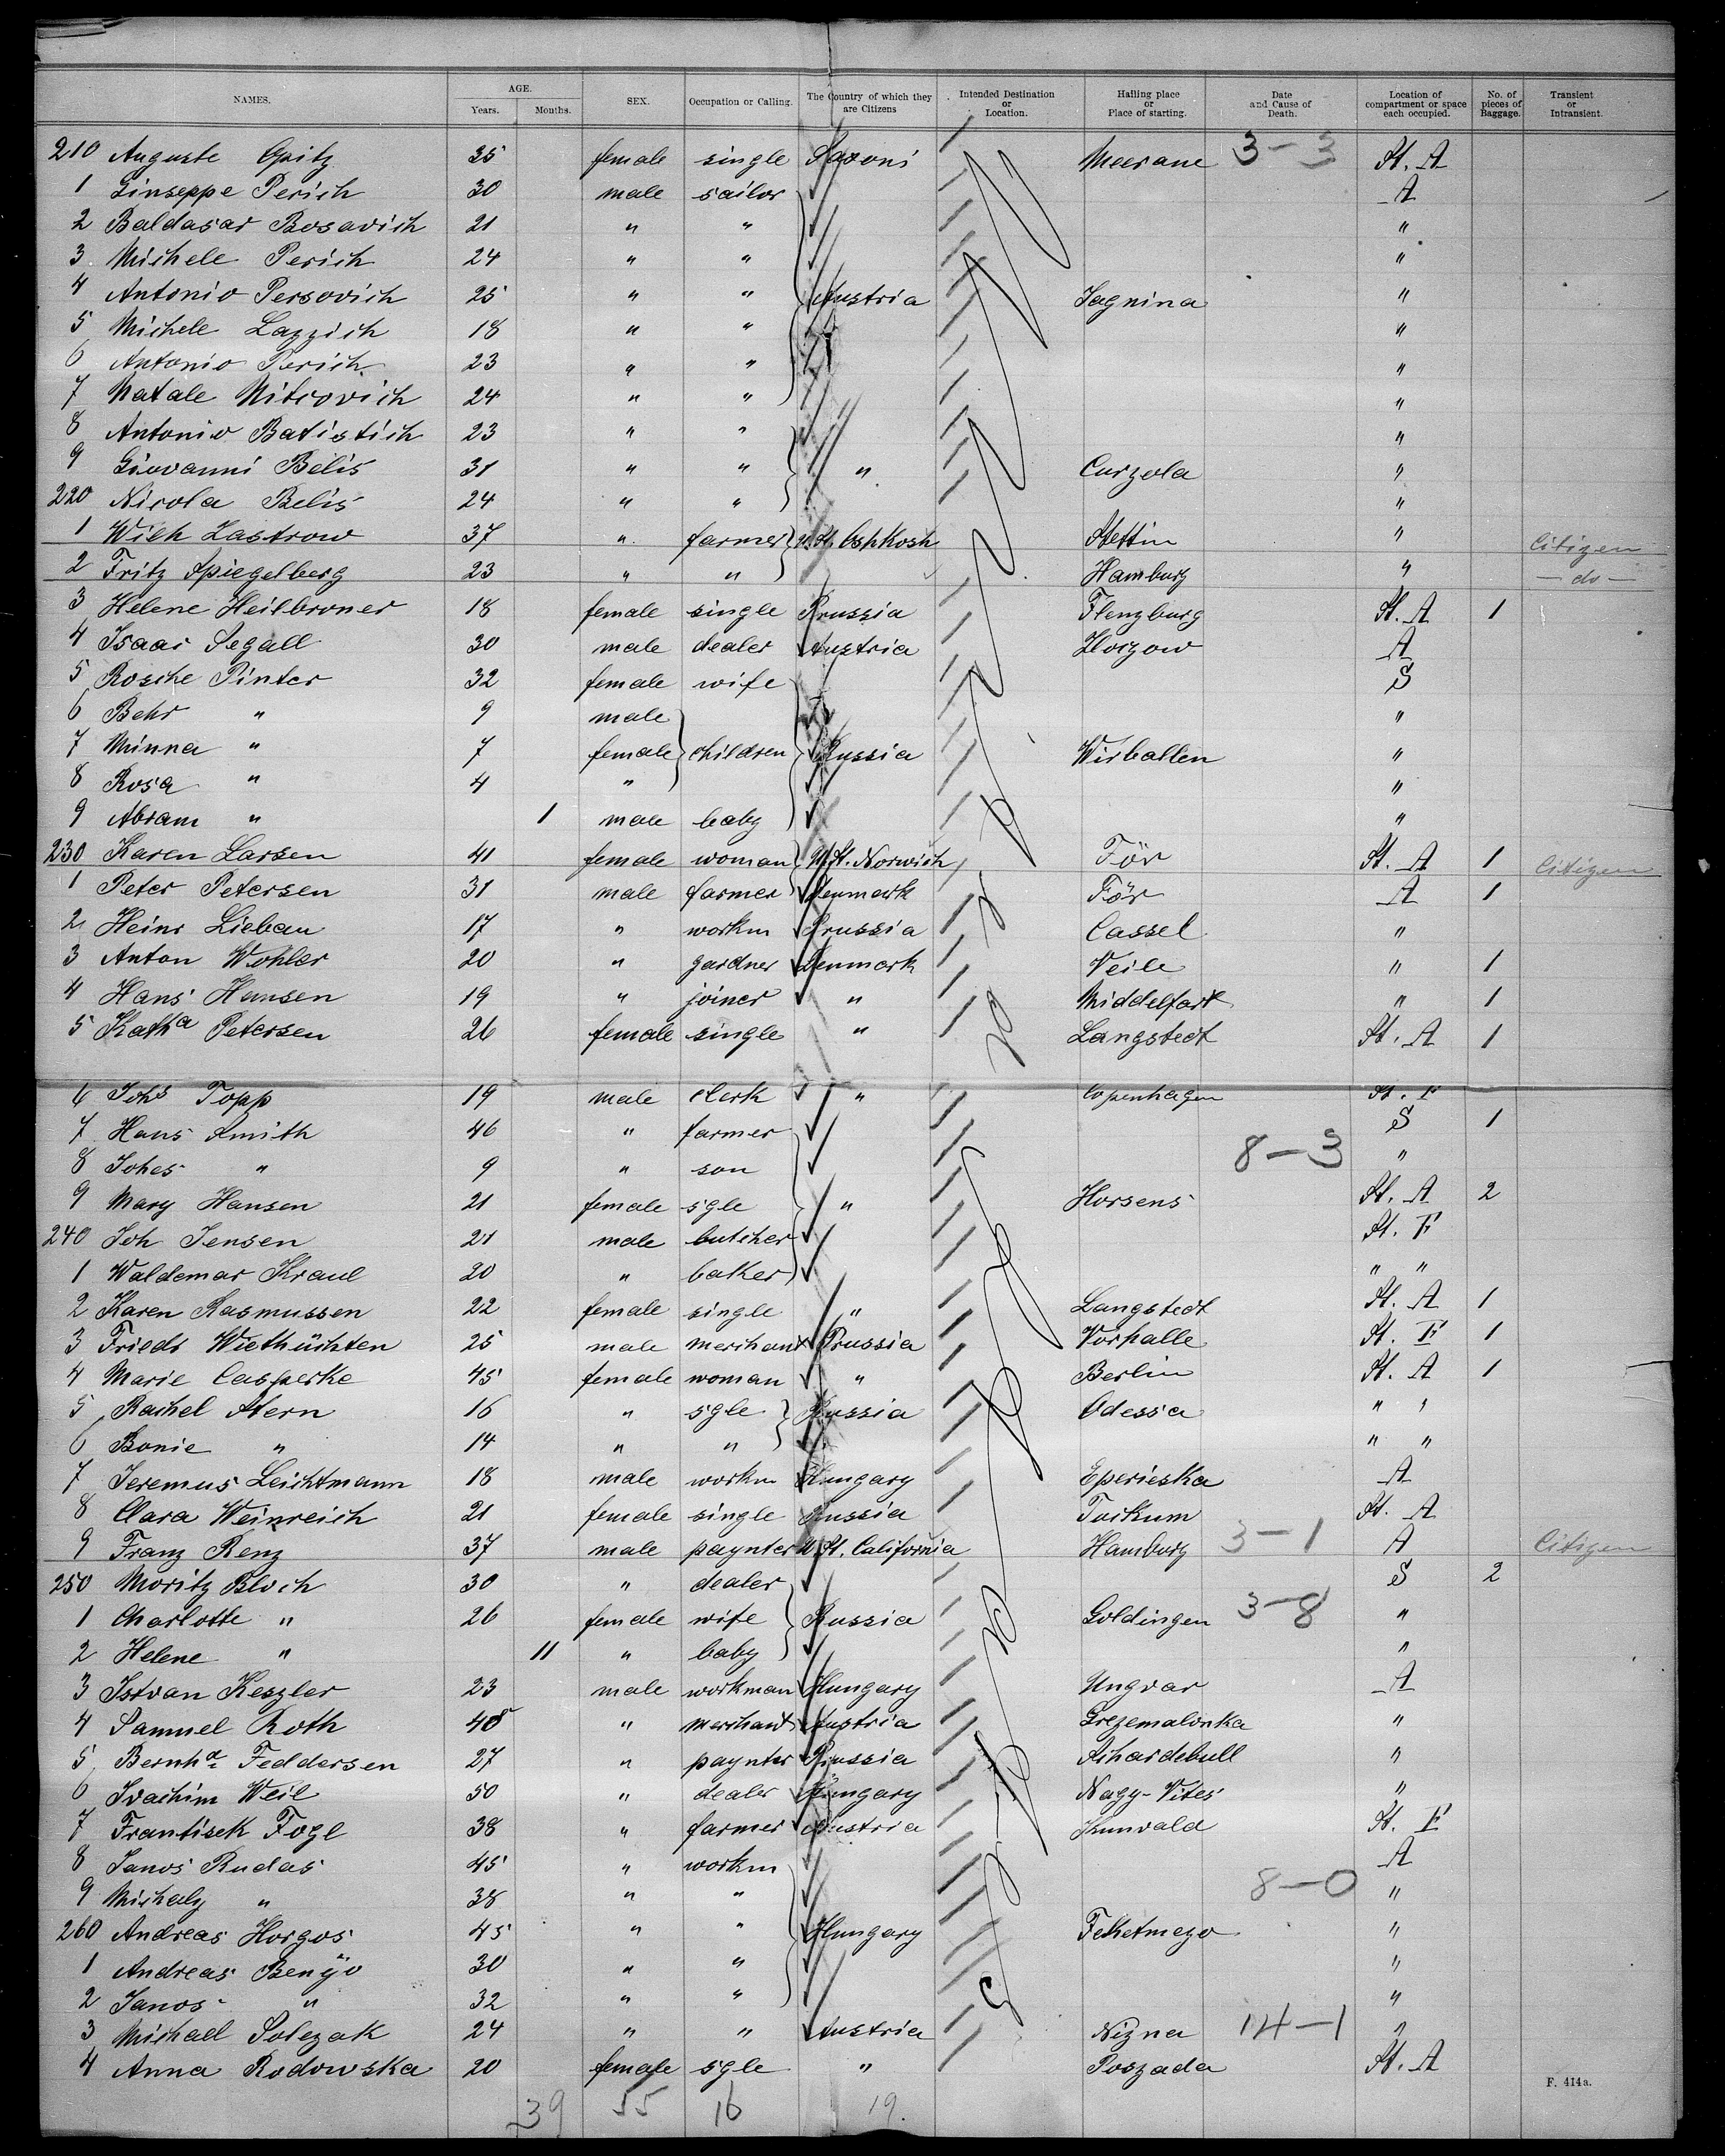 NAMES. AGE. Years. Months. SEX. Occupation or Calling. The Country of which they are Citizens Intended Destination or Location. Hailing place or Place of starting. Date and Cause of Death. Location of compartment or space each occupied. No. of pieces of Baggage. Transient or Intransient.
210 Auguste Opitz 35 female single Saxoni Meerane 3-3 St. A
1 Giuseppe Perich 30 male sailor A
2 Baldasar Bosavich 21 " " "
3 Michele Perich 24 " " "
4 Antonio Persovich 25 " " Austria Sagnina "
5 Michele Lazzich 18 " " "
6 Antonio Perich 23 " " "
7 Natale Mitrovich 24 " " "
8 Antonio Batistich 23 " " "
9 Giovanni Belis 31 " " " Curzola "
220 Nicola Belis 24 " " "
1 Wilh Lastrow 37 " farmer U. St. Oshkosh Stettin " Citizen
2 Fritz Spiegelberg 23 " " Hamburg " - do -
3 Helene Heilbroner 18 female single Prussia Flenzburg St. A 1
4 Isaac Segall 30 male dealer Austria Horzow A
5 Rosche Pinter 32 female wife S
6 Behr " 9 male "
7 Minna " 7 female children Russia Wirballen "
8 Rosa " 4 " "
9 Abram " 1 male baby "
230 Karen Larsen 41 female woman U. St. Norwich För St. A 1 Citizen
1 Peter Petersen 31 male farmer Denmark För A 1
2 Heinr Lieban 17 " workm Prussia Cassel "
3 Anton Wohler 20 " gardner Denmark Veile " 1
4 Hans Hansen 19 " joiner " Middelfart " 1
5 Katha Petersen 26 female single " Langstedt St. A 1
6 Johs Topp 19 male clerk " Copenhagen St. F
7 Hans Smith 46 " farmer S 1
8 Johes " 9 " son 8-3 "
9 Mary Hansen 21 female sgle " Horsens St. A 2
240 Joh Jensen 21 male butcher St. F
1 Waldemar Kraul 20 " baker " "
2 Karen Rasmussen 22 female single " Langstedt St. A 1
3 Friedr Wiethüchten 25 male merchant Prussia Vorhalle St. F 1
4 Marie Casperke 45 female woman " Berlin St. A 1
5 Rachel Stern 16 " sgle Russia Odessa " "
6 Bonie " 14 " " " "
7 Jeremus Leichtmann 18 male workm Hungary Eperieska A
8 Clara Weinreich 21 female single Russia Tuckum St. A
9 Franz Renz 37 male paynter U. St. California Hamburg 3-1 A Citizen
250 Moritz Bloch 30 " dealer S 2
1 Charlotte " 26 female wife Russia Goldingen 3-8 "
2 Helene " 11 " baby "
3 Istvan Keszler 23 male workman Hungary Ungvar A
4 Samuel Roth 48 " merchant Austria Grezemalonka "
5 Bernhd Feddersen 27 " paynter Prussia Ahardebull "
6 Joachim Weil 50 " dealer Hungary Nagy-Vites "
7 Frantisek Fogl 38 " farmer Austria Kunvald St. F
8 Janos Rudas 45 " workm A
9 Michaly " 38 " " 8-0 "
260 Andreas Horgos 45 " " Hungary Feketmezo "
1 Andreas Benyo 30 " " "
2 Janos " 32 " " "
3 Michael Solezak 24 " " Austria Nizna 14-1 "
4 Anna Rodowska 20 female sgle " Poszada St. A
F. 414a.
39 55 16 19.